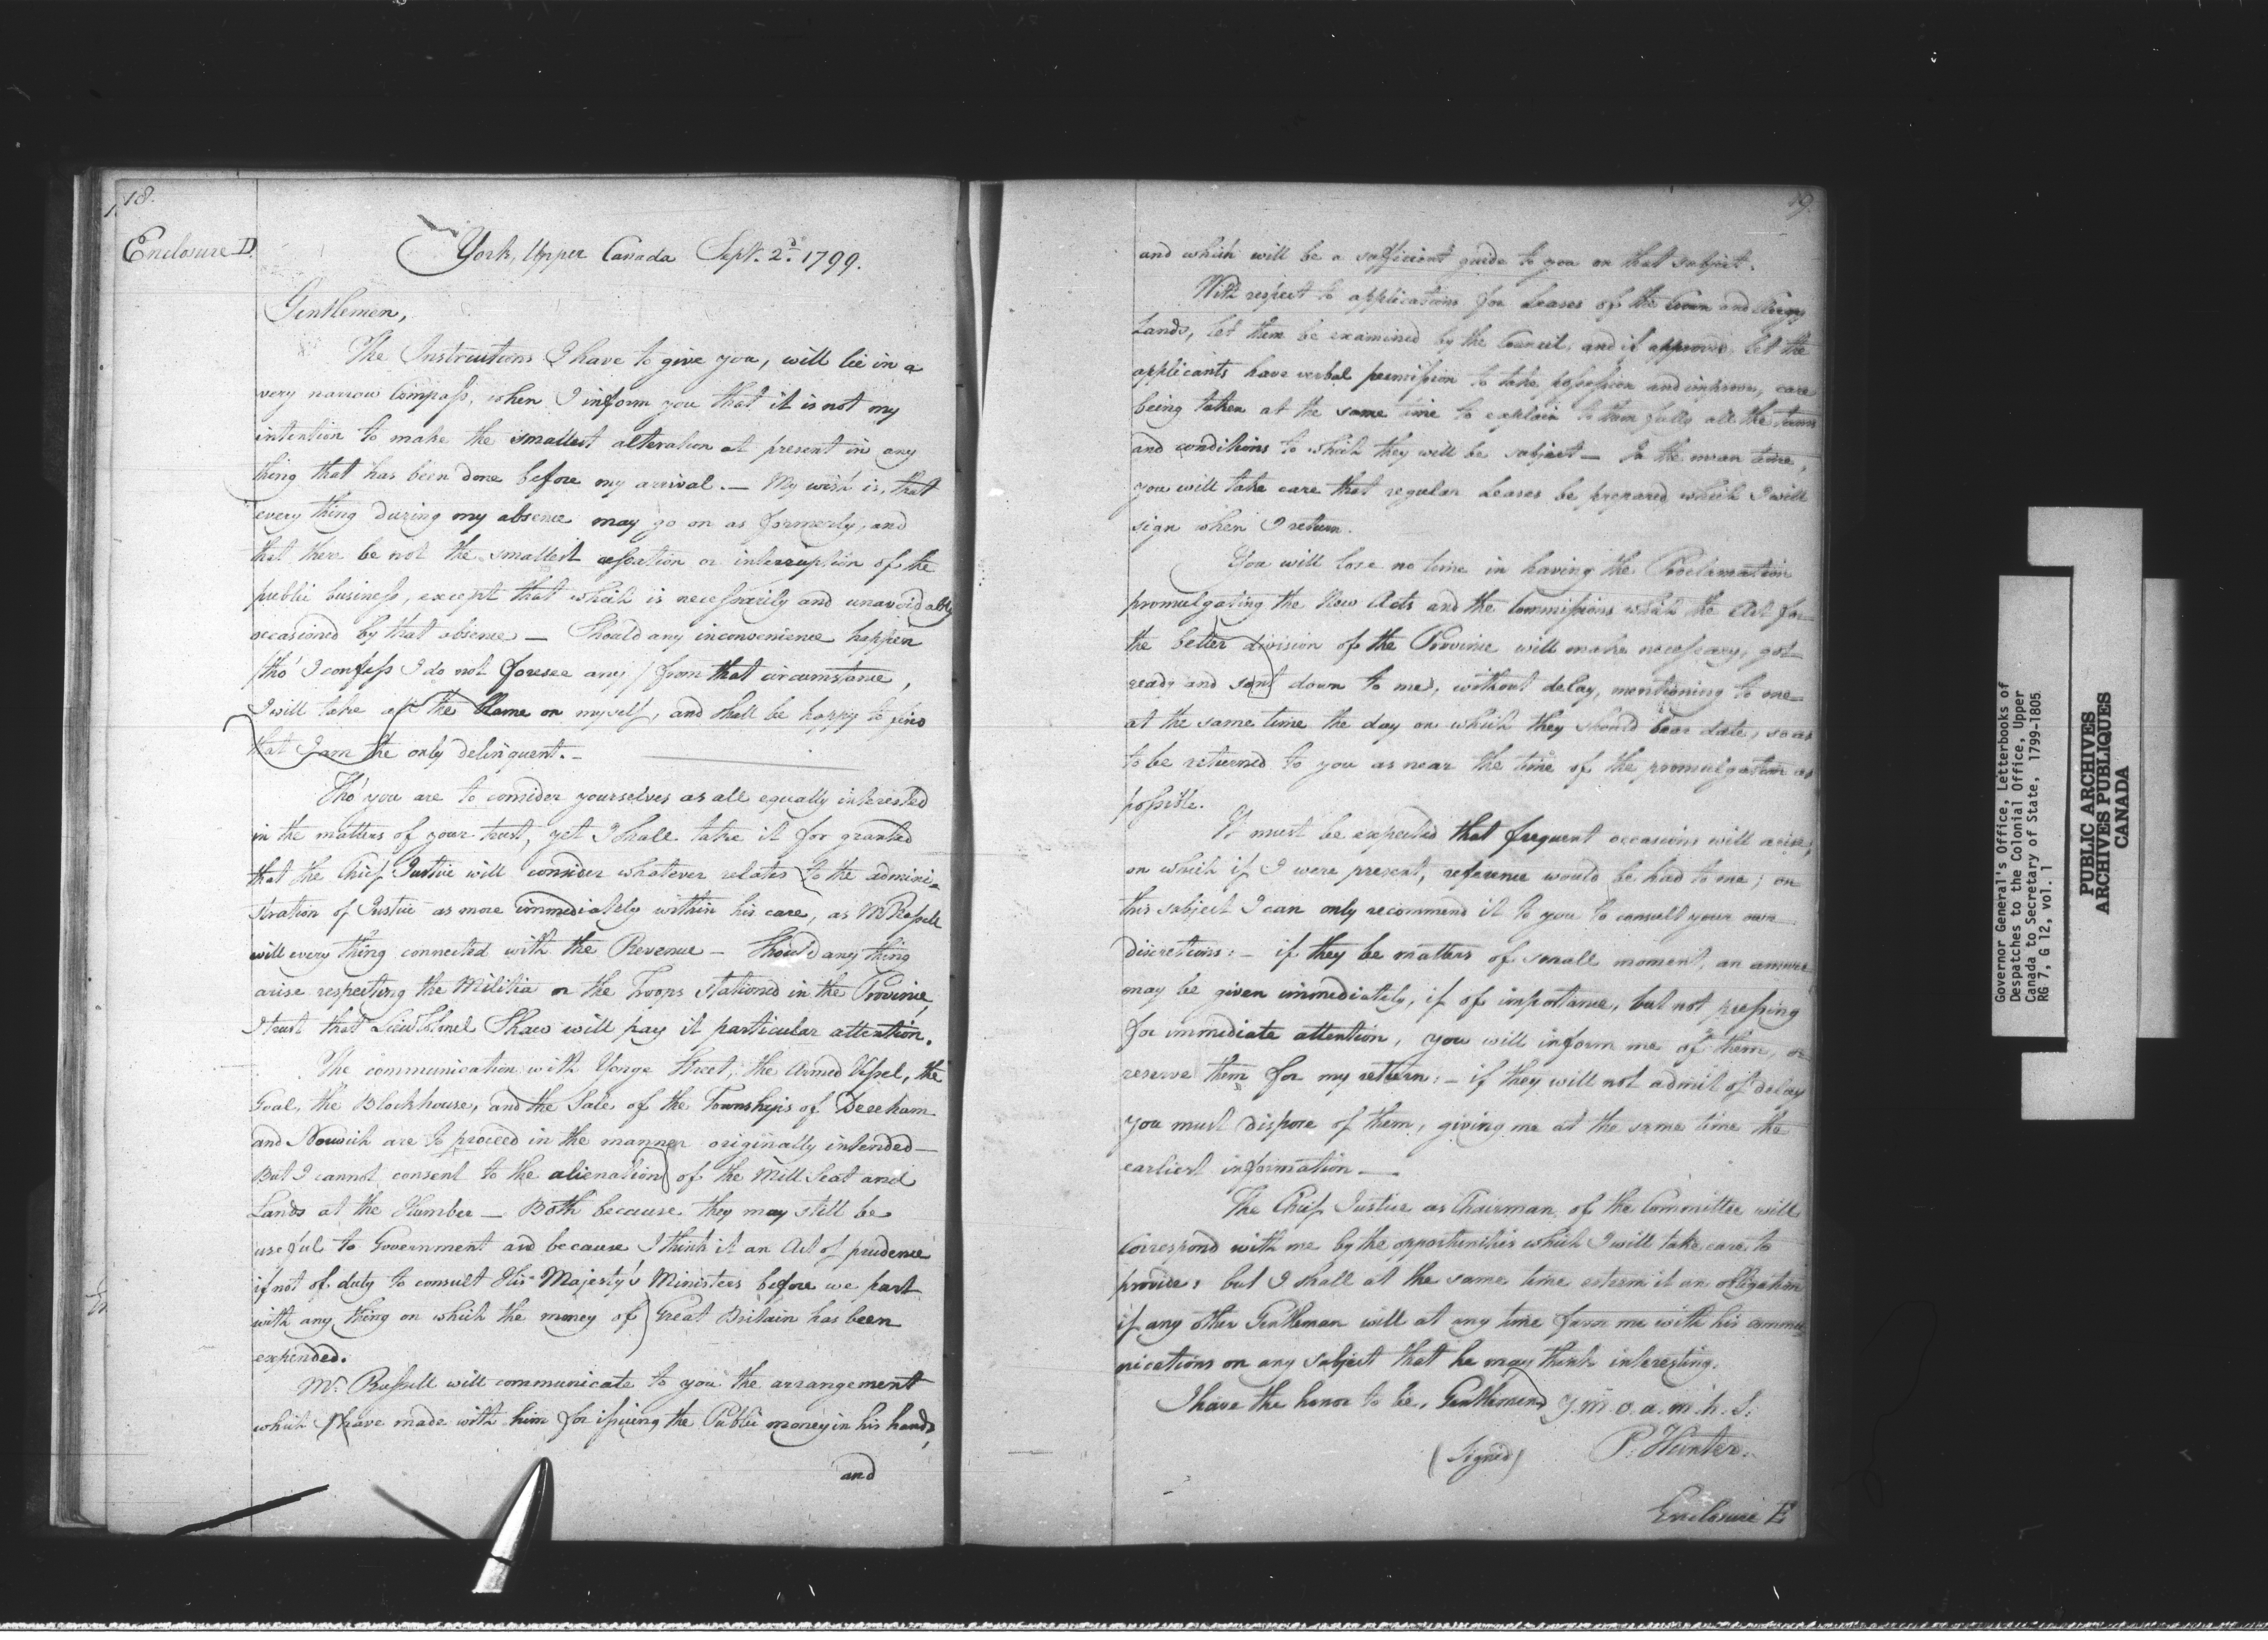 18.
Enclosure D.
York, Upper Canada Sept. 2d. 1799.
Gentlemen,
The Instructions I have to give you, will lie in a
very narrow Compass, when I inform you that it is not my
intention to make the smallest alteration at present in any
thing that has been done before my arrival. — My wish is, that
every thing during my absence may go on as formerly, and
that there be not the smallest cessation or interruption of the
public business, except that which is necessarily and unavoidably
occasioned by that absence — Should any inconvenience happen
/tho' I confess I do not foresee any/ from that circumstance,
I will take all the blame on myself, and shall be happy to find
that I am the only delinquent. —
Tho' you are to consider yourselves as all equally interested
in the matters of your trust, yet I shall take it for granted
that the Chief Justice will consider whatever relates to the admini-
stration of Justice as more immediately within his care, as Mr Russell
will every thing connected with the Revenue — Should any thing
arise respecting the Militia or the Troops stationed in the Province,
I trust that Lieut Colonel Shaw will pay it particular attention.
The communication with Yonge Street, the Armed Vessel, the
Goal, the Blockhouse, and the Sale of the Townships of Deeham
and Norwich are to proceed in the manner originally intended —
But I cannot consent to the alienation of the Mill Seat and
Lands at the Humber — Both because they may still be
useful to Government and because I think it an Act of prudence
if not of duty to consult His Majesty's Ministers before we part
with any thing on which the money of Great Britain has been
expended.
Mr. Russell will communicate to you the arrangement
which I have made with him for issuing the Public money in his hands,
and
19.
and which will be a sufficient guide to you on that subject.
With respect to applications for Leases of the Crown and Clergy
Lands, let them be examined by the Council, and if approved, let the
applicants have verbal permission to take possession and improve, care
being taken at the same time to explain to them fully all the terms
and conditions to which they will be subject — In the mean time,
you will take care that regular Leases be prepared which I will
sign when I return.
You will lose no time in having the Proclamation
promulgating the New Acts and the Commissions which the Act for
the better division of the Province will make necessary, got
ready and sent down to me, without delay, mentioning to me
at the same time the day on which they should bear date, so as
to be returned to you as near the time of the promulgation as
possible.
It must be expected that frequent occasions will arise,
on which if I were present, reference would be had to me; on
this subject I can only recommend it to you to consult your own
discretions: — if they be matters of small moment, an answer
may be given immediately, if of importance, but not pressing
for immediate attention, you will inform me of them, or
reserve them for my return: — if they will not admit of delay
you must dispose of them, giving me at the same time the
earliest information —
The Chief Justice as Chairman of the Committee will
Correspond with me by the opportunities which I will take care to
provide: but I shall at the same time esteem it an obligation
if any other Gentleman will at any time favor me with his commu-
nications on any subject that he may think interesting.
I have the honor to be, Gentlemen, Y. m. o. a. m. h. S.
(Signed) P. Hunter.
Enclosure E
Governor General's Office, Letterbooks of
Despatches to the Colonial Office, Upper
Canada to Secretary of State, 1799-1805
RG 7, G 12, vol. 1
PUBLIC ARCHIVES
ARCHIVES PUBLIQUES
CANADA